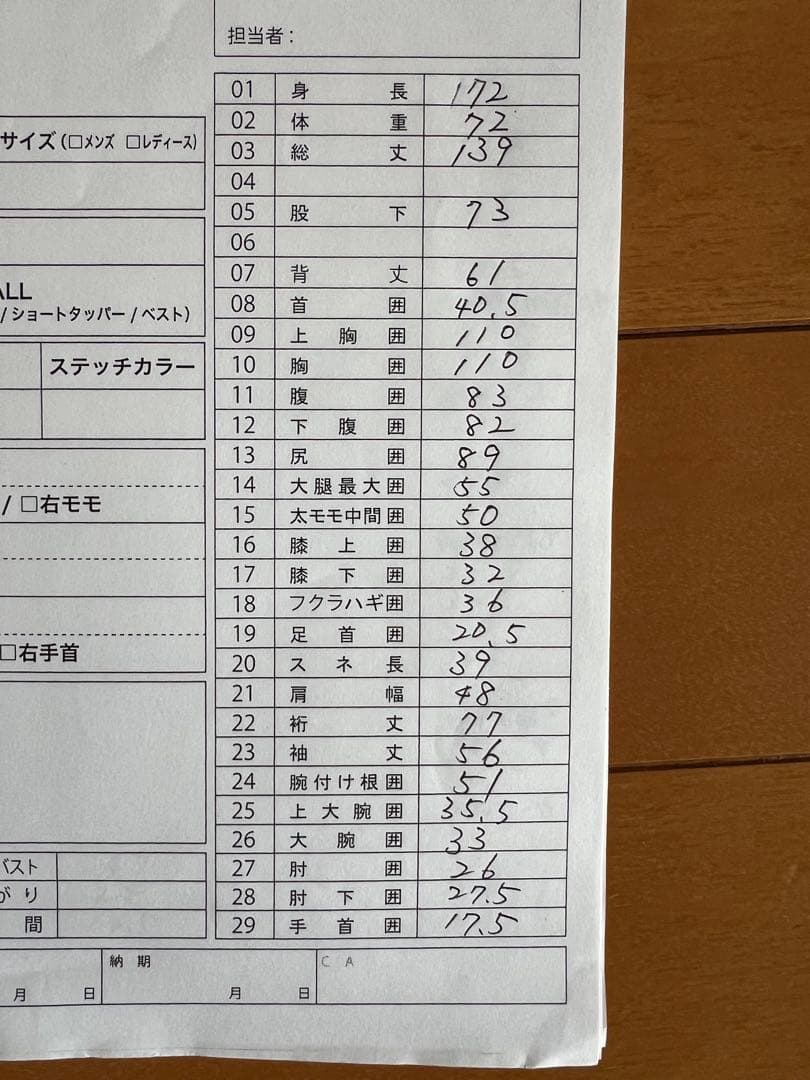 担当者：
01 身長 172
02 体重 72
03 総丈 139
04
05 股下 73
06
07 背丈 61
08 首囲 40.5
09 上胸囲 110
10 胸囲 110
11 腹囲 83
12 下腹囲 82
13 尻囲 89
14 大腿最大囲 55
15 太モモ中間囲 50
16 膝上囲 38
17 膝下囲 32
18 フクラハギ囲 36
19 足首囲 20.5
20 スネ長 39
21 肩幅 48
22 裄丈 77
23 袖丈 56
24 腕付け根囲 51
25 上大腕囲 35.5
26 大腕囲 33
27 肘囲 26
28 肘下囲 27.5
29 手首囲 17.5
サイズ（□メンズ □レディース）
ALL
/ ショートタッパー / ベスト）
ステッチカラー
/ □右モモ
□右手首
バスト
がり
間
月 日
納期
月 日
CA